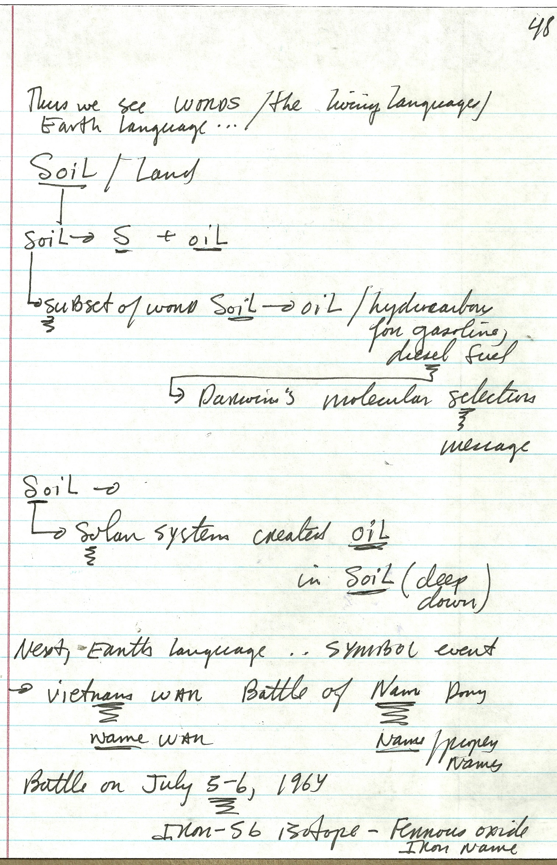 48
Thus we see WORDS / the living languages /
Earth Language...
Soil / Land
Soil → S + oil
subset of word Soil → oil / hydrocarbon
for gasoline,
diesel fuel
Darwin's molecular selection
message
Soil →
Solar system created oil
in Soil (deep
down)
Next, Earth language .. SYMBOL event
→ Vietnam WAR Battle of Nam Dong
Name WAR Name / proper
Names
Battle on July 5-6, 1964
Iron-56 isotope - Ferrous oxide
Iron Name